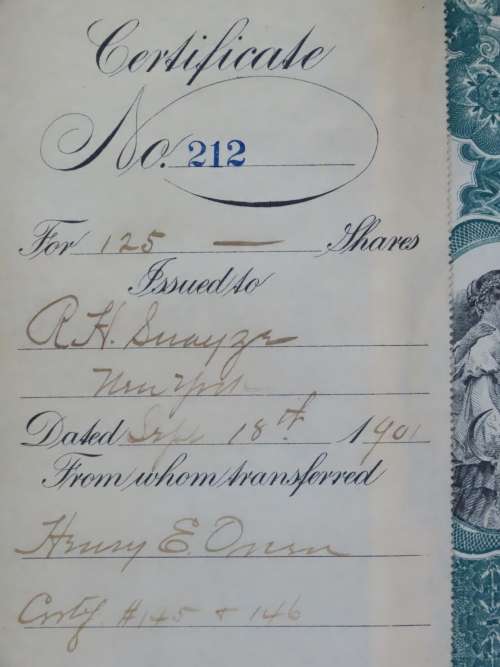 Certificate
No. 212
For 125 — Shares
Issued to
R. H. Swayze
New York
Dated Sept 18th 1901
From whom transferred
Henry E. Owen
Certf. #145 & 146